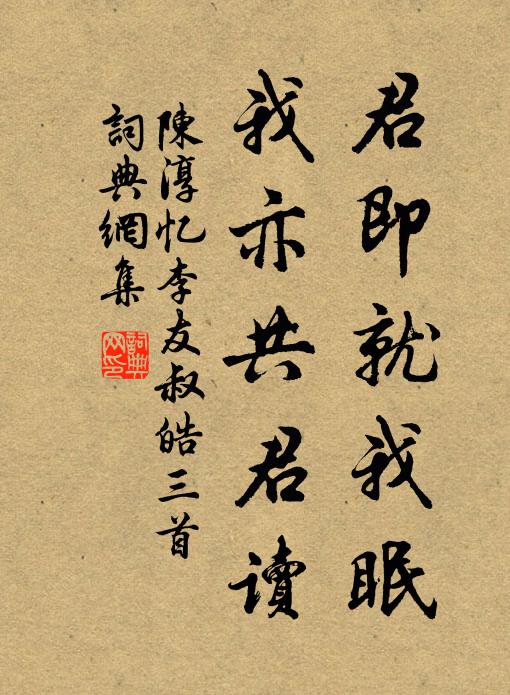 君即就我眠
我亦共君读
陳淳忆李友叔皓三首
詞典網集
詞典網印